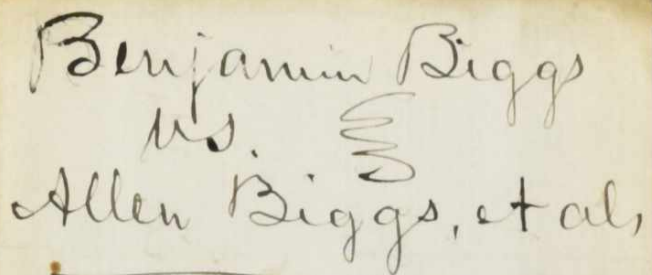 Benjamin Biggs
vs.
Allen Biggs, et als